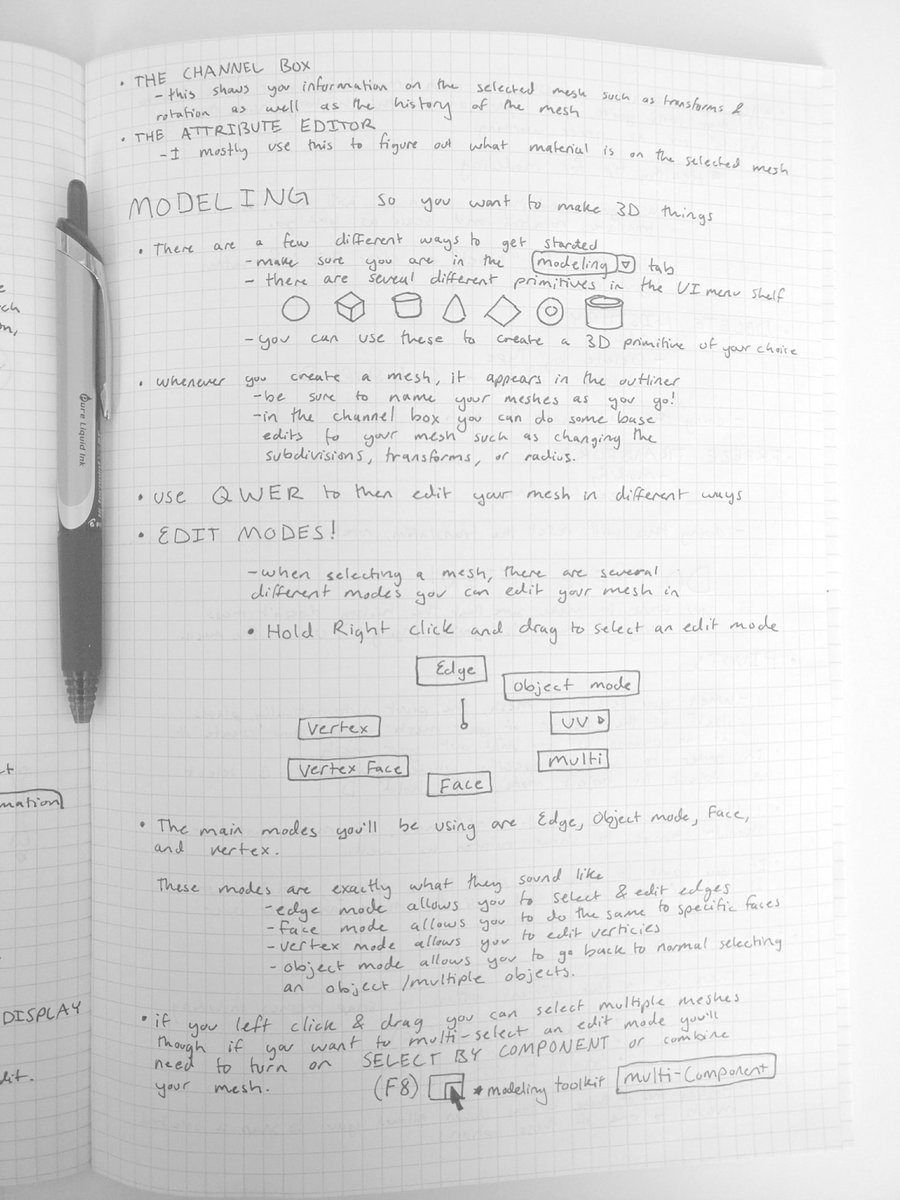 • THE CHANNEL BOX
- this shows you information on the selected mesh such as transforms &
rotation as well as the history of the mesh
• THE ATTRIBUTE EDITOR
- I mostly use this to figure out what material is on the selected mesh
MODELING so you want to make 3D things
• There are a few different ways to get started
- make sure you are in the modeling tab
- there are several different primitives in the UI menu shelf
- you can use these to create a 3D primitive of your choice
• whenever you create a mesh, it appears in the outliner
- be sure to name your meshes as you go!
- in the channel box you can do some base
edits to your mesh such as changing the
subdivisions, transforms, or radius.
• USE QWER to then edit your mesh in different ways
• EDIT MODES!
- when selecting a mesh, there are several
different modes you can edit your mesh in
• Hold Right click and drag to select an edit mode
Edge
Object mode
Vertex
UV
Vertex Face
Multi
Face
• The main modes you'll be using are Edge, Object mode, Face,
and vertex.
These modes are exactly what they sound like
- edge mode allows you to select & edit edges
- face mode allows you to do the same to specific faces
- vertex mode allows you to edit verticies
- object mode allows you to go back to normal selecting
an object/multiple objects.
• if you left click & drag you can select multiple meshes
though if you want to multi-select an edit mode you'll
need to turn on SELECT BY COMPONENT or combine
your mesh. (F8) * modeling toolkit multi-Component
DISPLAY
Pure Liquid Ink